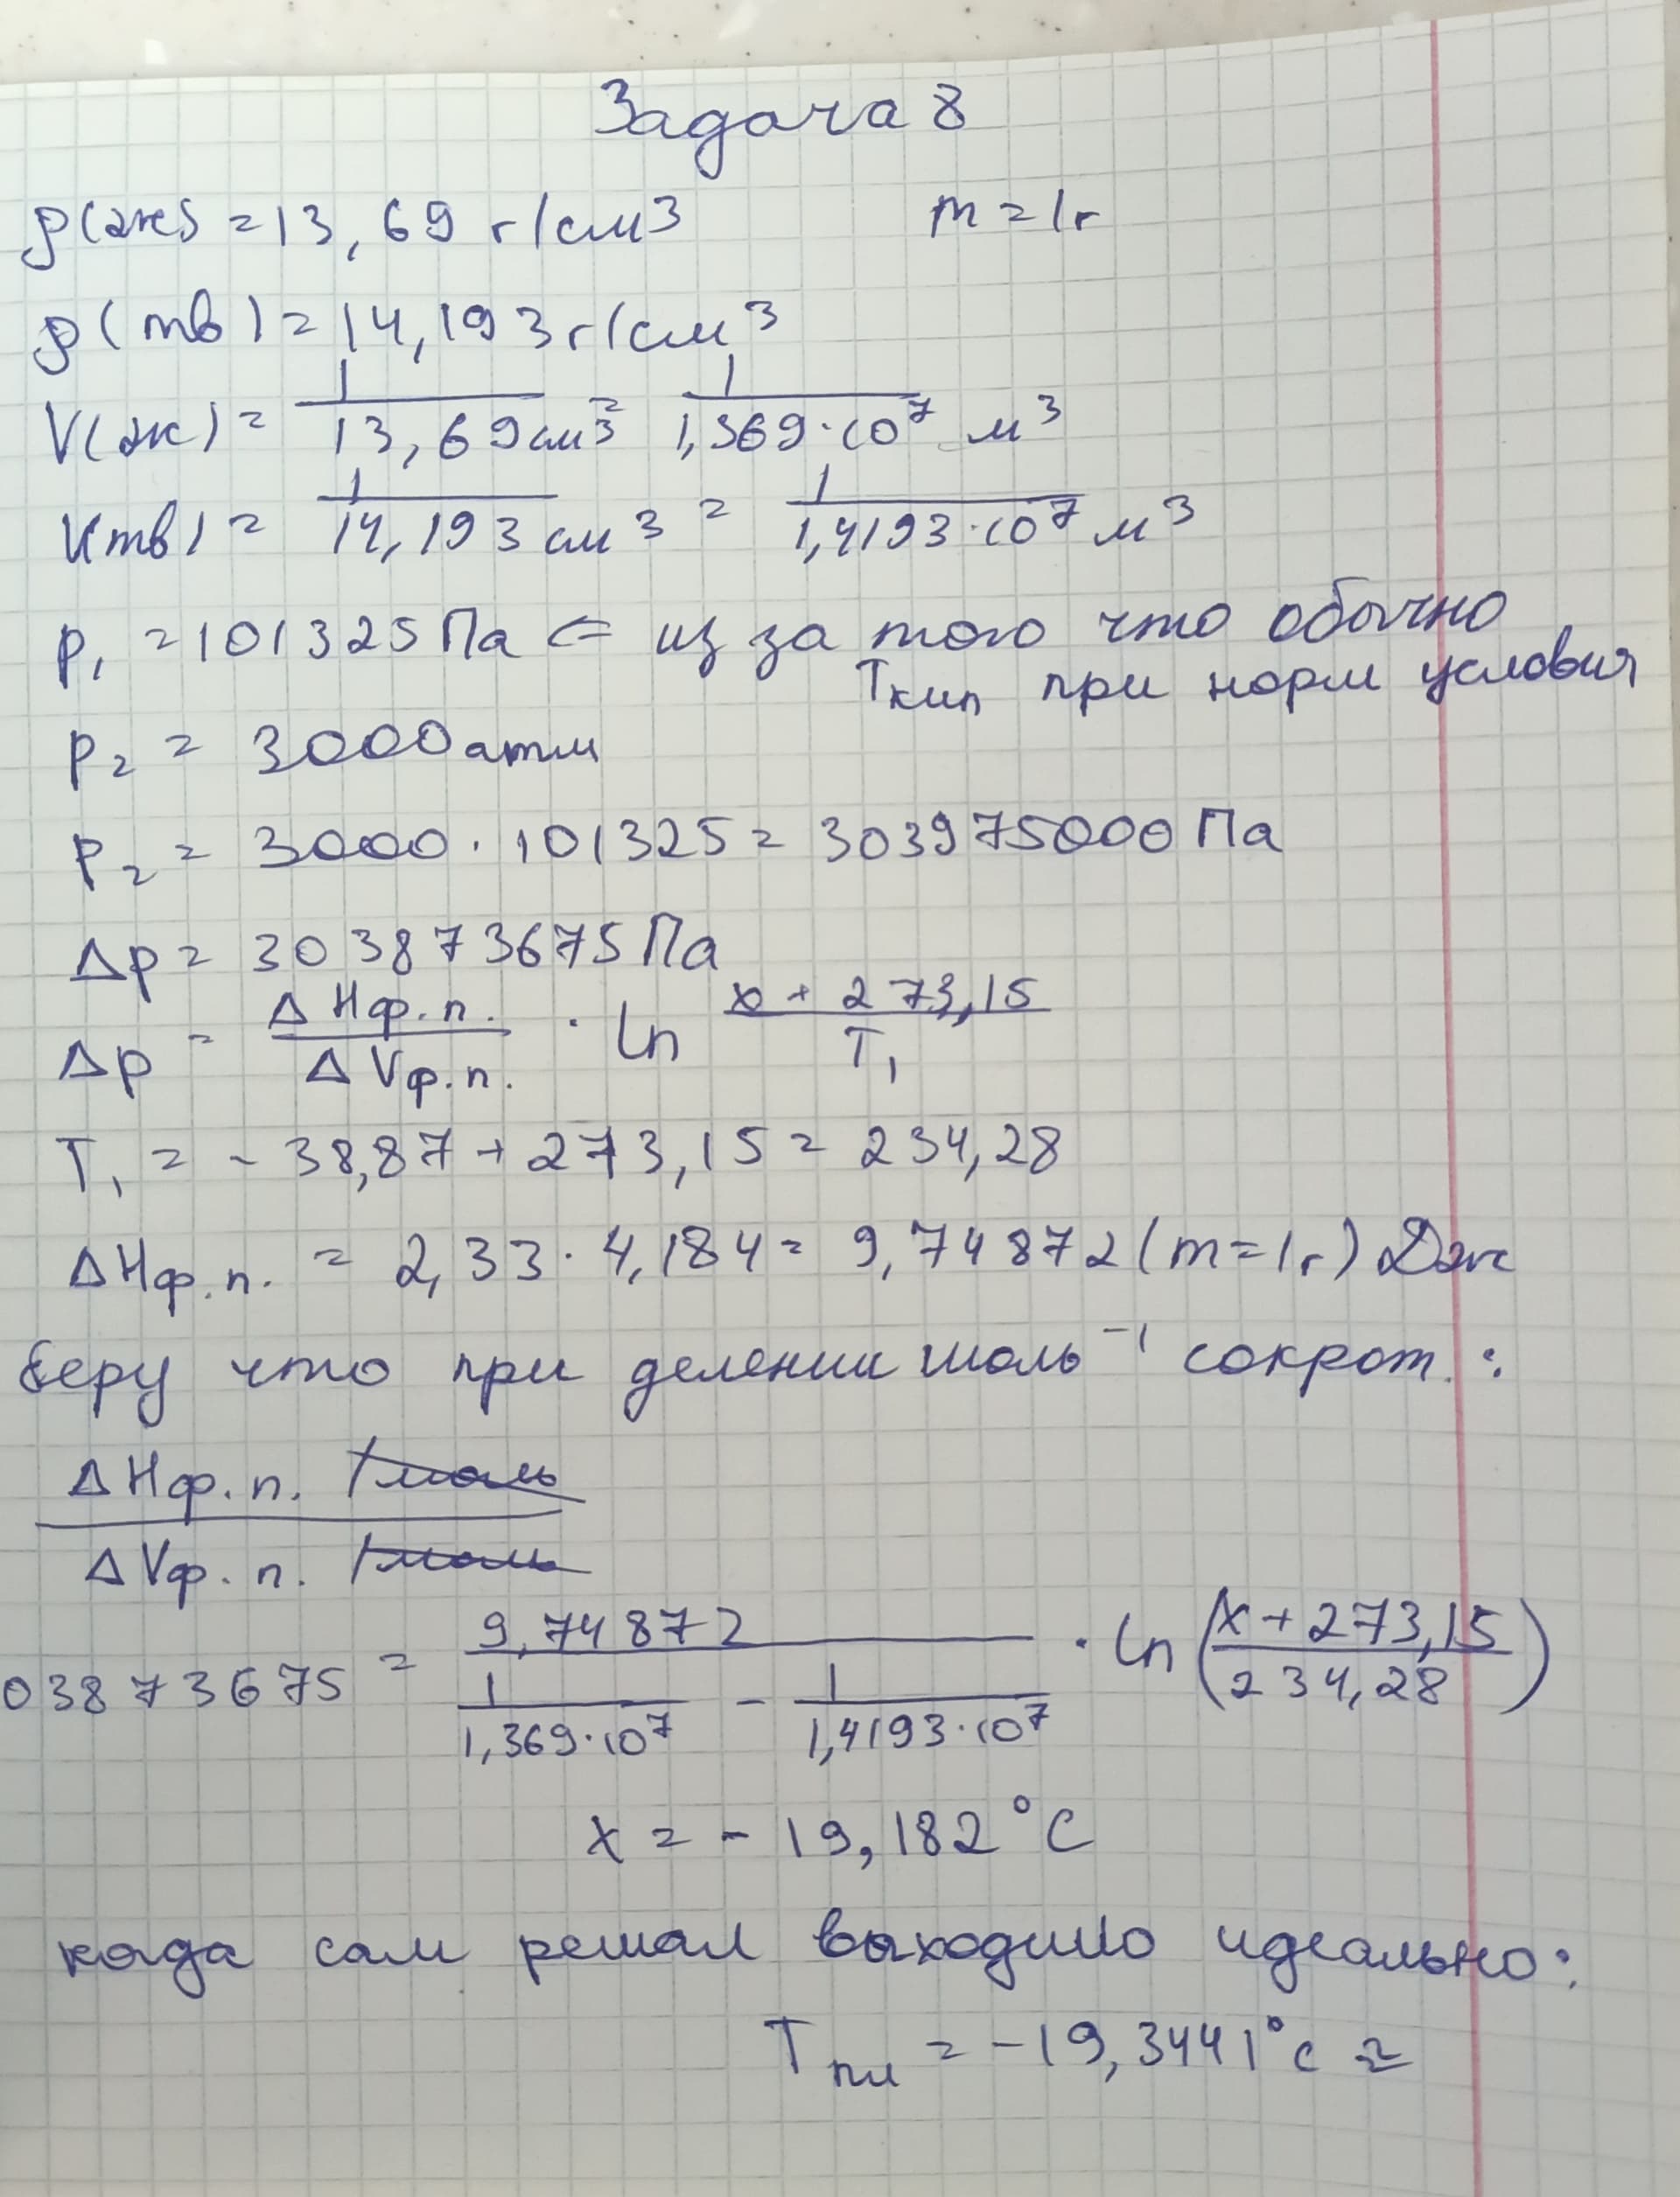 Задача 8
ρ(ж) = 13,69 г/см³ m = 1г
ρ(тв) = 14,193 г/см³
V(ж) = 1/13,69 см³ = 1/1,369·10⁷ м³
V(тв) = 1/14,193 см³ = 1/1,4193·10⁷ м³
p₁ = 101325 Па ⇐ из за того что обычно
Tкип при норм условия
p₂ = 3000 атм
p₂ = 3000 · 101325 = 303975000 Па
Δp = 303873675 Па
Δp = ΔHф.п./ΔVф.п. · ln (x + 273,15)/T₁
T₁ = -38,87 + 273,15 = 234,28
ΔHф.п. = 2,33 · 4,184 = 9,74872 (m = 1г) Дж
беру что при делении моль⁻¹ сокрот. :
ΔHф.п. /моль
ΔVф.п. /моль
03873675 = 9,74872/(1/1,369·10⁷ - 1/1,4193·10⁷) · ln((x + 273,15)/234,28)
x = -19,182°C
когда сам решал выходило идеально:
Tпл = -19,3441°C ≈